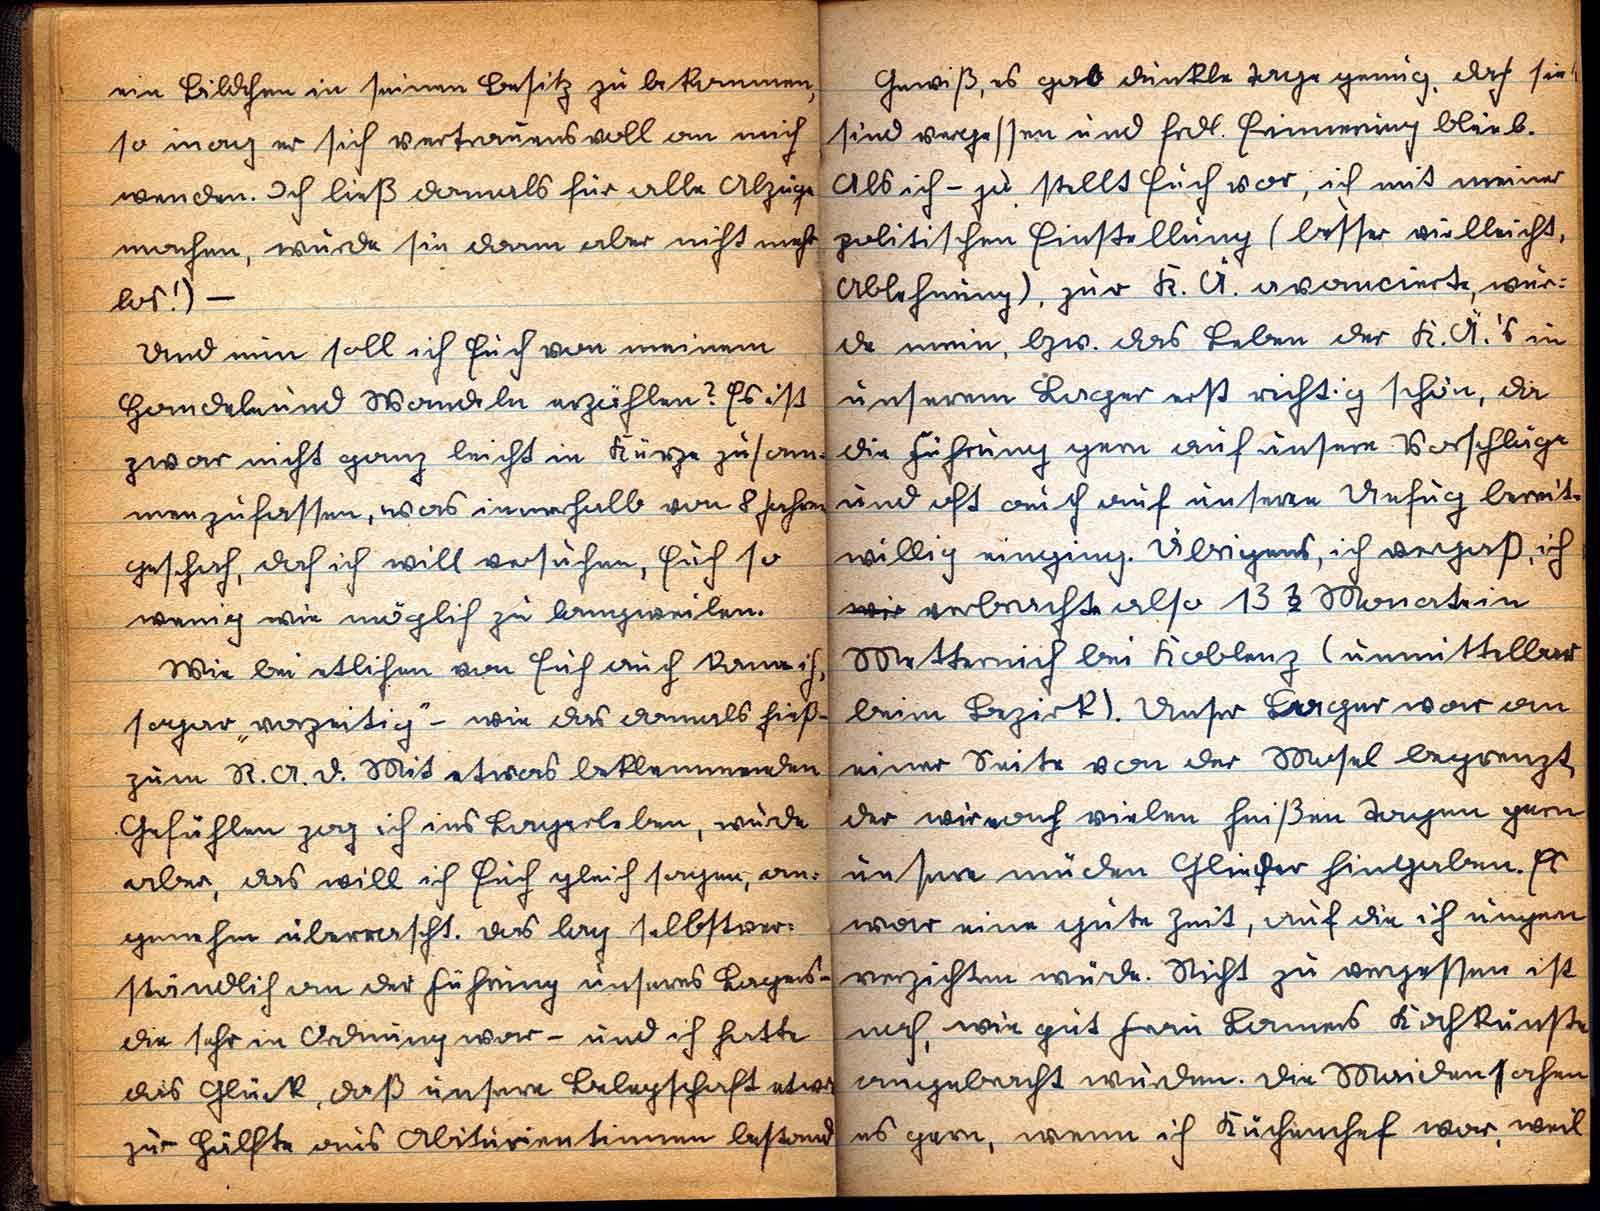 ein Bildchen in seinen Besitz zu bekommen,
so mag er sich vertrauensvoll an mich
wenden. Ich ließ damals für alle Abzüge
machen, wurde sie dann aber nicht mehr
los!) —
Und nun soll ich Euch von meinem
Handeln und Wandeln erzählen? Es ist
zwar nicht ganz leicht in Kürze zusam-
menzufassen, was innerhalb von 8 Jahren
geschah, doch ich will versuchen, Euch so
wenig wie möglich zu langweilen.
Wie bei etlichen von Euch auch kam ich,
sogar „vorzeitig" – wie das damals hieß –
zum R.A.D. Mit etwas beklemmenden
Gefühlen zog ich ins Lagerleben, wurde
aber, das will ich Euch gleich sagen, an-
genehm überrascht. Das lag selbstver-
ständlich an der Führung unseres Lagers –
die sehr in Ordnung war – und ich hatte
das Glück, daß unsere Belegschaft etwa
zur Hälfte aus Abiturientinnen bestand
Gewiß, es gab dunkle Tage genug, doch sie
sind vergessen und frdl. Erinnerung blieb.
Als ich – ja, stellt Euch vor, ich mit meiner
politischen Einstellung (besser vielleicht,
Ablehnung), zur K.Ä. avancierte, wur-
de mein, bzw. das Leben der K.Ä.'s in
unserem Lager erst richtig schön, da
die Führung gern auf unsere Vorschläge
und oft auch auf unseren Unfug bereit-
willig einging. Übrigens, ich vergaß, ich
wir verbrachte also 13 Monate in
Metternich bei Koblenz (unmittelbar
beim Bezirk). Unser Lager war an
einer Seite von der Mosel begrenzt,
der wir nach vielen heißen Tagen gern
unsere müden Glieder hingaben. Es
war eine gute Zeit, auf die ich ungern
verzichten würde. Nicht zu vergessen ist
noch, wie gut Frau Kochkünste
angebracht wurden. Die Maiden sahen
es gern, wenn ich Küchenchef war, weil